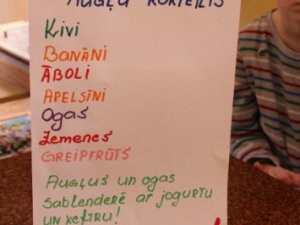 AUGĻU KOKTEILIS
Kivi
BANĀNI
ĀBOLI
APELSĪNI
OGAS
ZEMENES
GREIPFRŪTS
AUGĻUS UN OGAS
SABLENDERĒ AR JOGURTU
UN KEFĪRU!